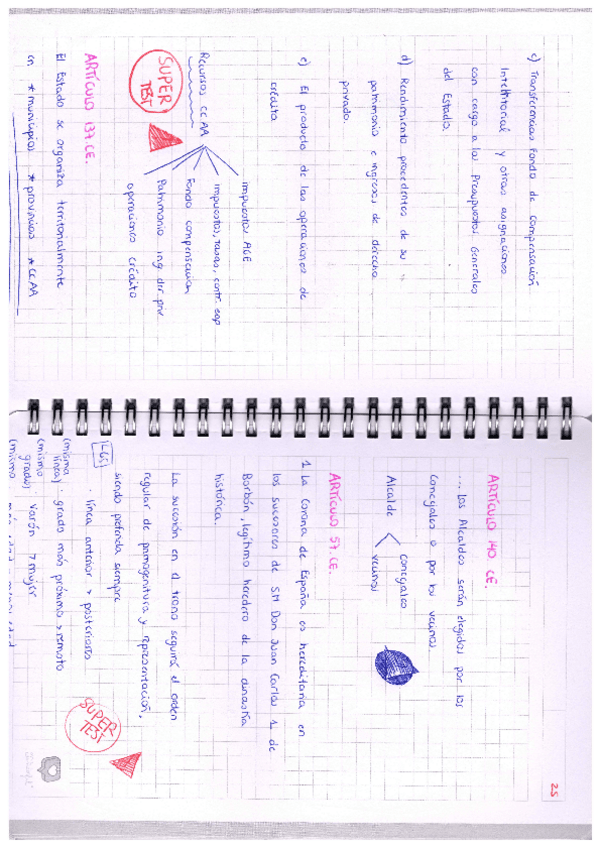 c) Transferencias fondo de compensación
Interritorial y otras asignaciones
con cargo a los Presupuestos Generales
del Estado.
d) Rendimiento procedentes de su
patrimonio e ingresos de derecho
privado.
e) El producto de las operaciones de
crédito.
Recursos CCAA
impuestos AGE
impuestos, tasas, contr. esp
Fondo compensación
Patrimonio ing. drr priv.
operaciones crédito
SUPER
TEST
ARTÍCULO 137. CE.
El Estado se organiza territorialmente
en * municipios * provincias * CCAA
25
ARTÍCULO 140 CE.
... Los Alcaldes serán elegidos por los
Concejales o por los vecinos.
Alcalde
concejales
vecinos
ARTÍCULO 57. CE.
1. La Corona de España es hereditaria en
los sucesores de S.M Don Juan Carlos 1. de
Borbón, legítimo heredero de la dinastía
histórica.
La sucesión en el trono seguirá el orden
regular de primogenitura y representación,
siendo preferida siempre
· línea anterior > posteriores
(misma línea) grado más próximo > remoto
(mismo grado) · Varón > mujer
(mismo
SUPER
TEST